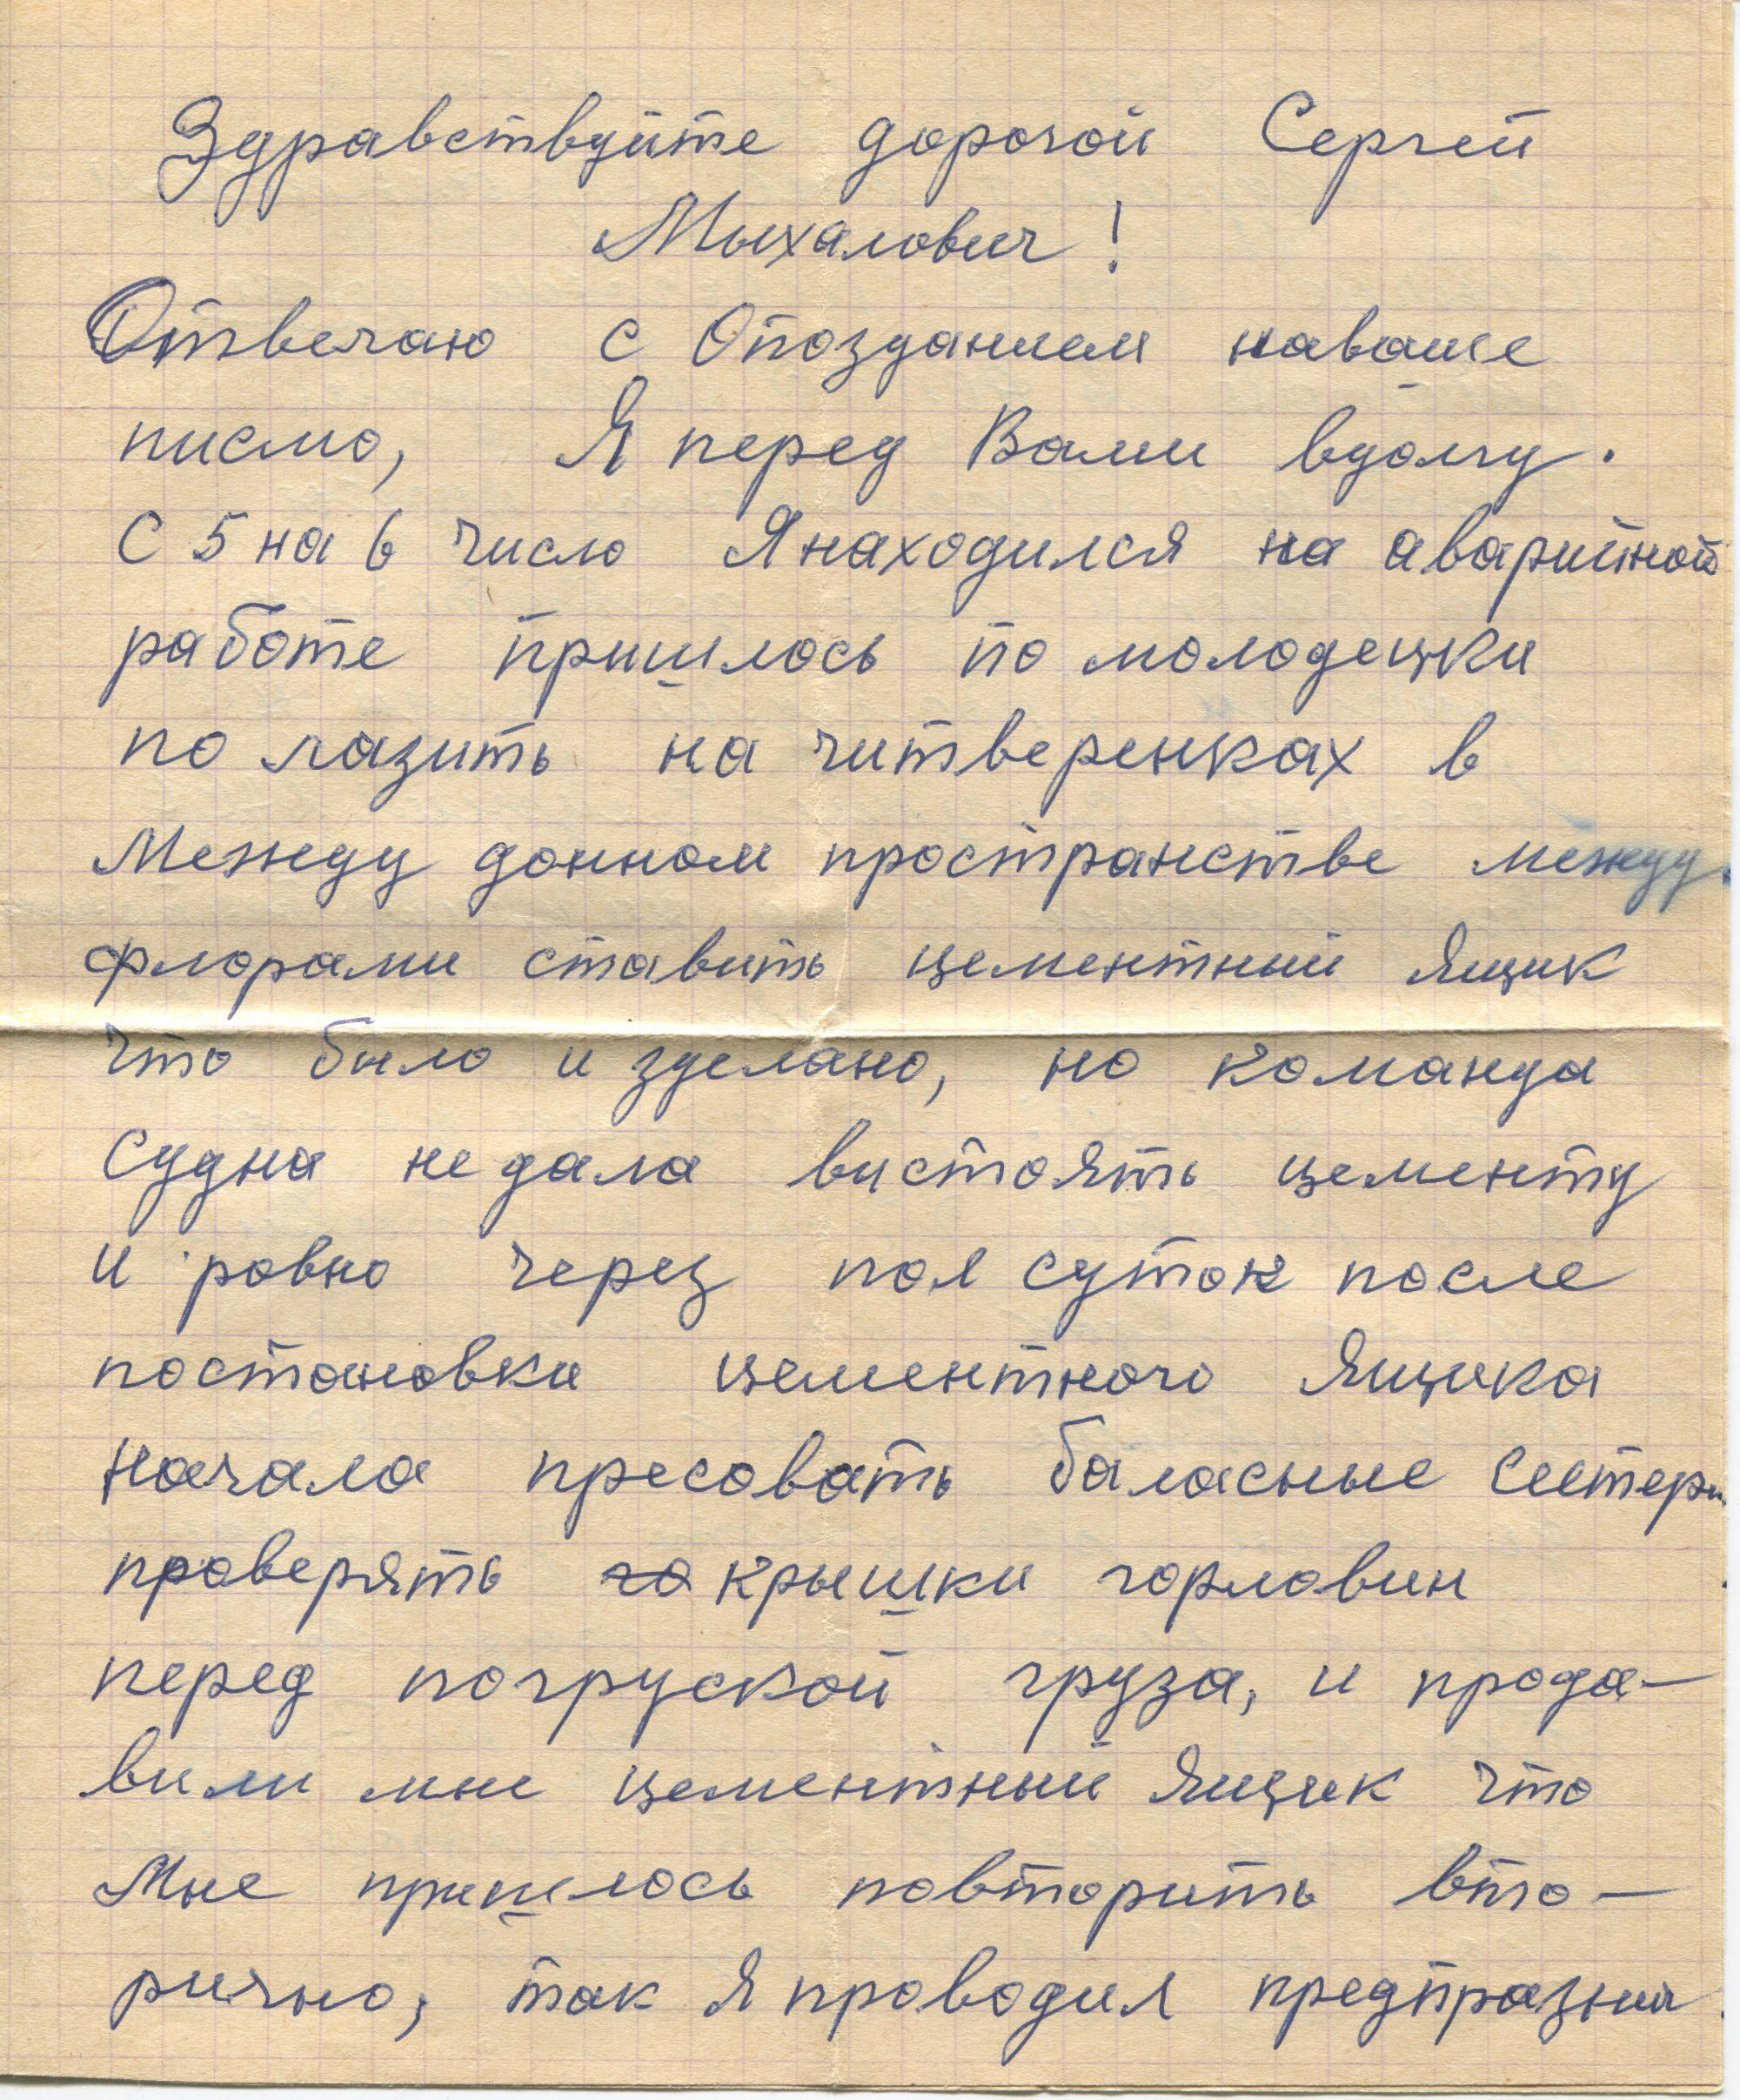 Здравствуйте дорогой Сергей
Мыхалович!
Отвечаю с Опозданием наваше
писмо, Я перед Вами вдолгу.
С 5 на 6 число Я находился на аварийной
работе пришлось по молодецки
по лазить на читверенках в
Между донном пространстве между
флорами ставить цементный ящик
что было и зделано, но команда
Судна не дала вистоять цементу
и ровно через пол суток после
постановки цементного Ящика
начала пресовать баласные Систерн
проверять го крышки горловин
перед погруской груза, и прода-
вили мне цементный Ящик что
Мне пришлось повторить вто-
рично, так Я проводил предпразнич